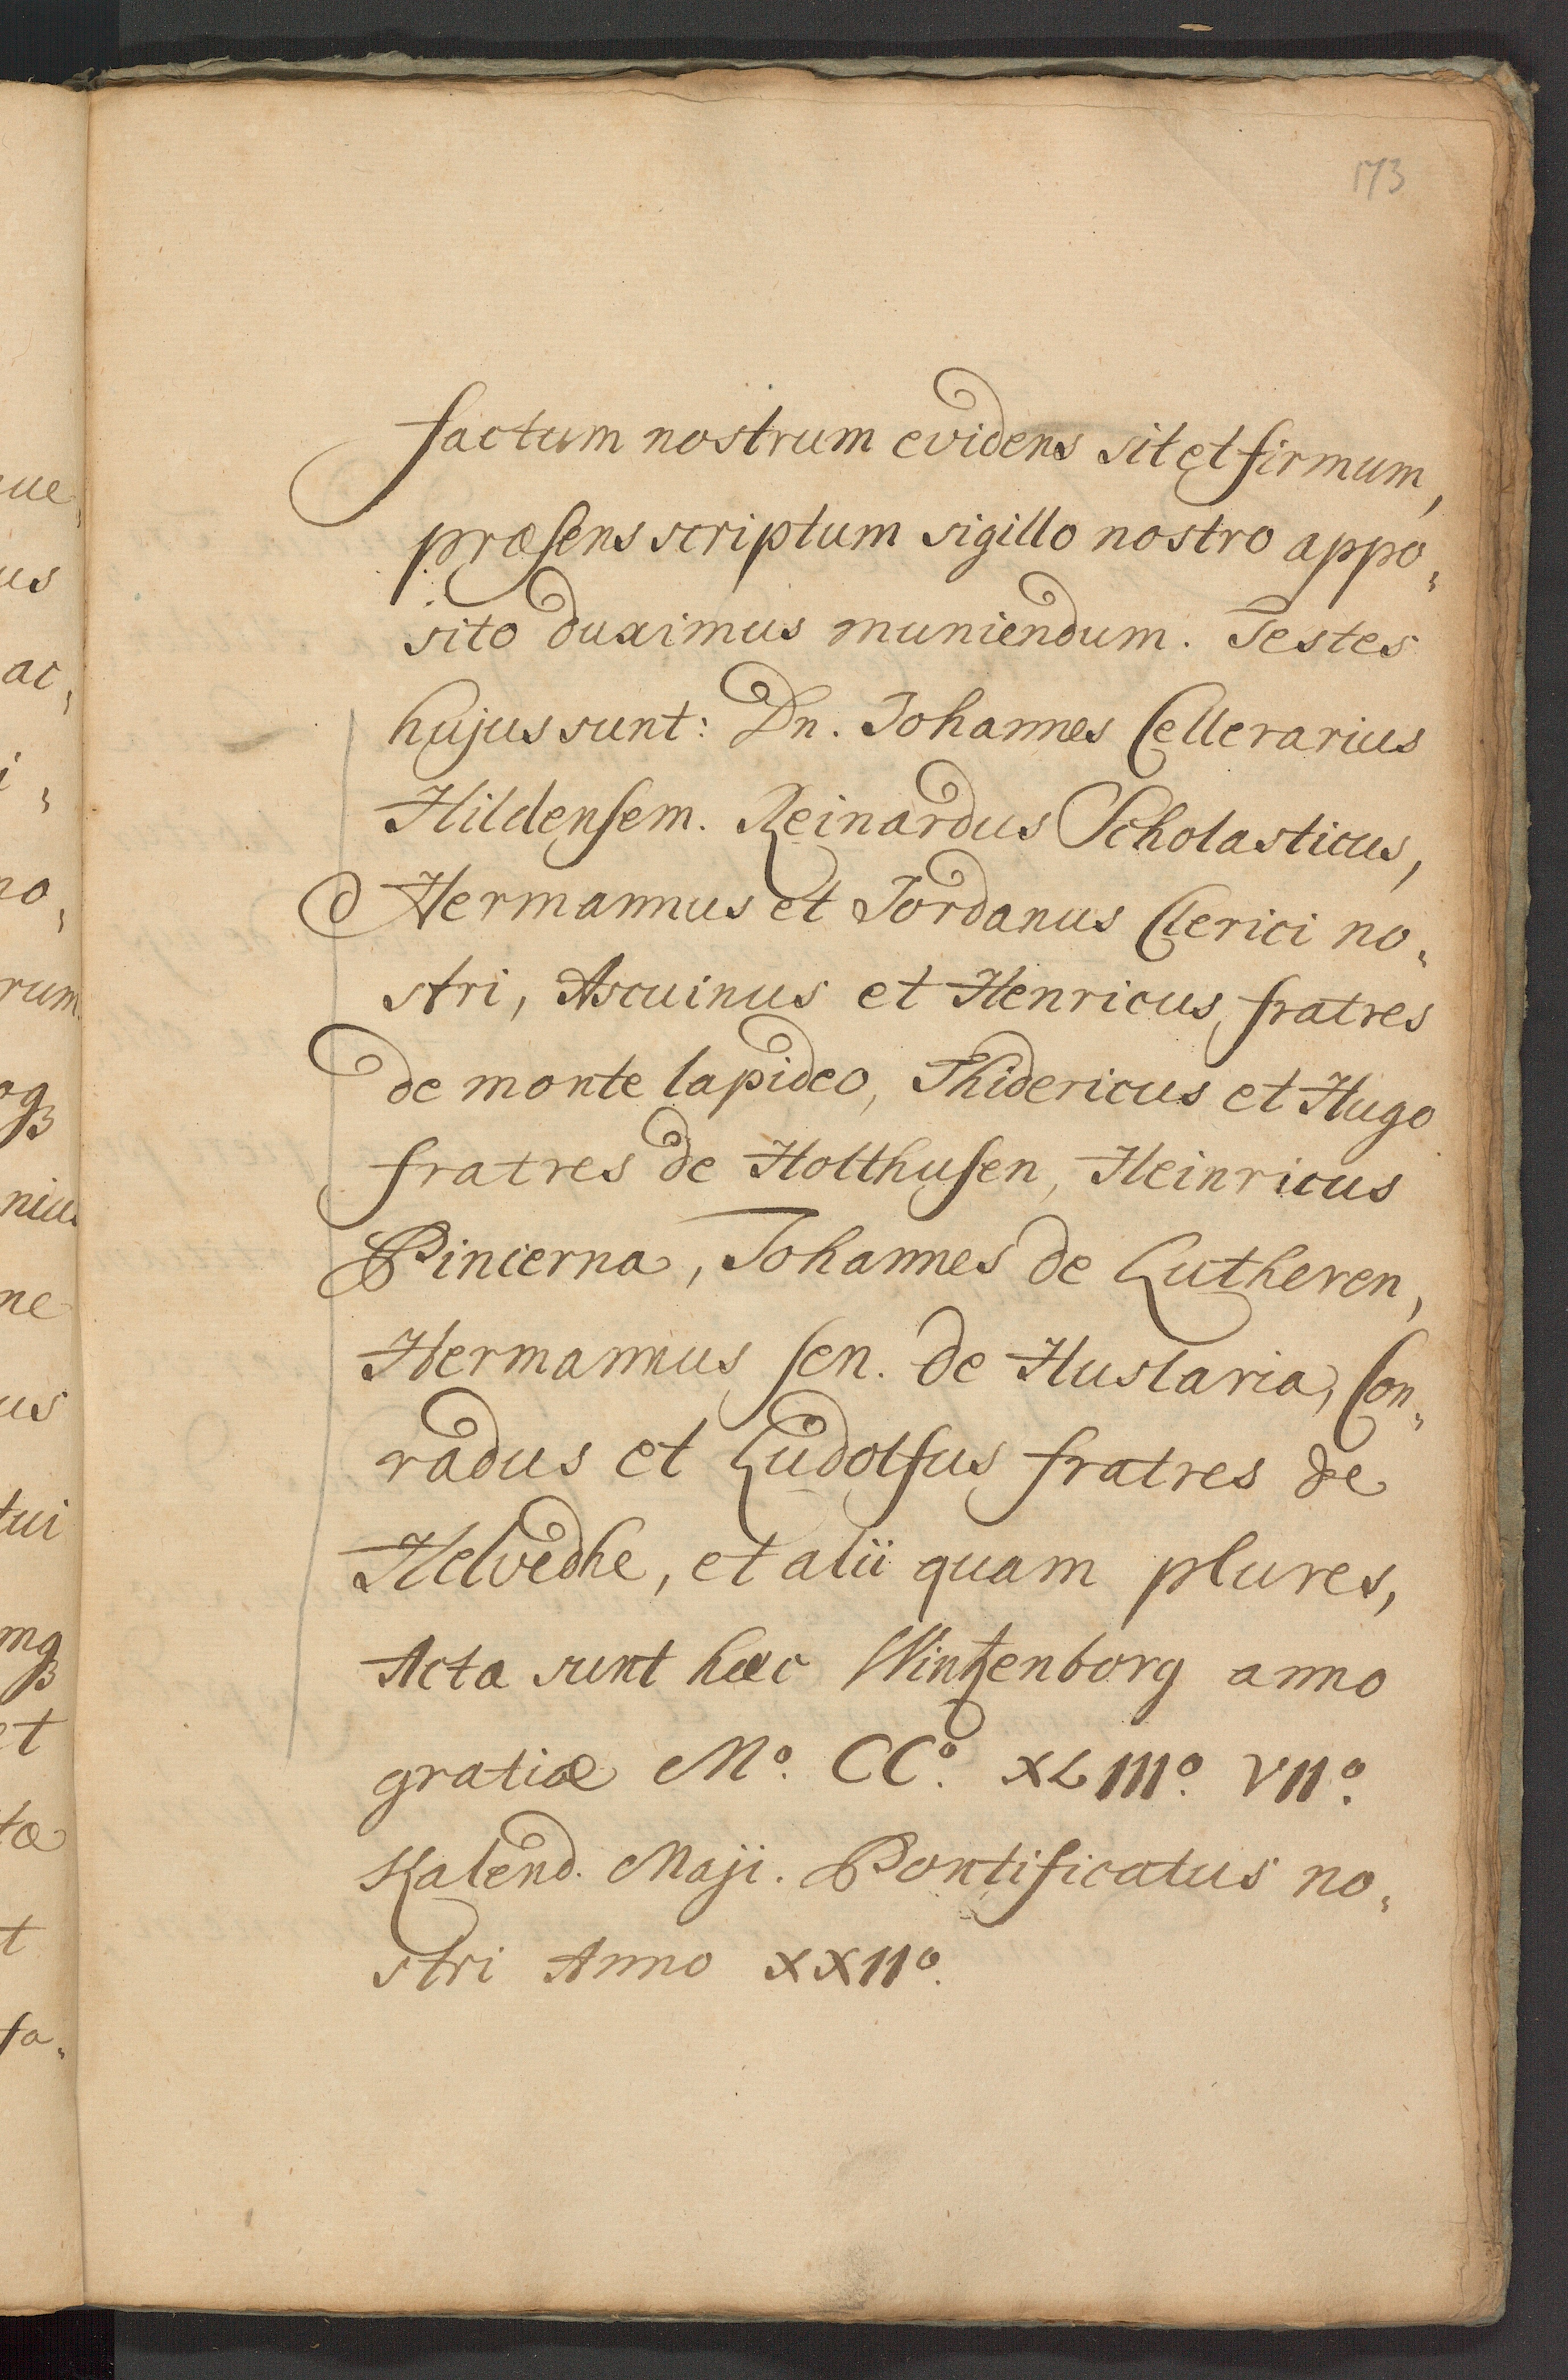 173
factum nostrum evidens sit et firmum,
præsens scriptum sigillo nostro appo„
sito duximus muniendum. Testes
hujus sunt: Dn. Johannes Cellerarius
Hildensem. Reinardus Scholasticus,
Hermannus et Jordanus Clerici no„
stri, Ascuinus et Henricus, fratres
de monte lapideo, Thidericus et Hugo
fratres de Holthusen, Heinricus
Pincerna, Johannes de Lutheren,
Hermannus sen. de Huslaria, Con„
radus et Ludolfus fratres de
Helvedhe, et alii quam plures,
Acta sunt hæc Wintzenborg anno
gratiæ Mº. CCº. XLIIIº. VIIº.
Kalend. Maji. Pontificatus no„
stri Anno XXIIº.
ue
us
ac„
i„
no„
rum
niu
ne
us
tui
et
tæ
t
fa„